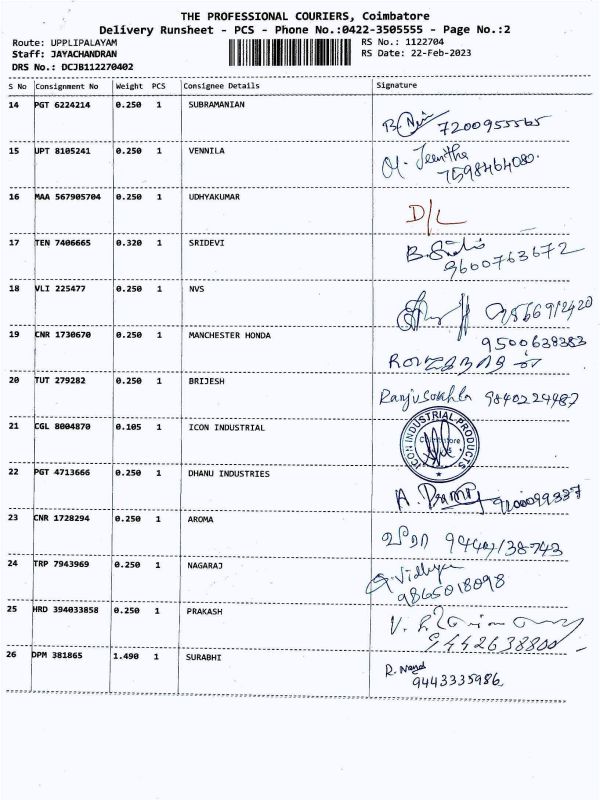 THE PROFESSIONAL COURIERS, Coimbatore
Delivery Runsheet - PCS - Phone No.:0422-3505555 - Page No.:2
Route: UPPLIPALAYAM
RS No.: 1122704
Staff: JAYACHANDRAN
RS Date: 22-Feb-2023
DRS No.: DCJB112270402
S No Consignment No Weight PCS Consignee Details Signature
14 PGT 6224214 0.250 1 SUBRAMANIAN
7200955565
15 UPT 8105241 0.250 1 VENNILA
7598464080.
16 MAA 567905704 0.250 1 UDHYAKUMAR
D/L
17 TEN 7406665 0.320 1 SRIDEVI
9600763672
18 VLI 225477 0.250 1 NVS
9566912420
19 CNR 1730670 0.250 1 MANCHESTER HONDA
9500638383
20 TUT 279282 0.250 1 BRIJESH
9840224487
21 CGL 8004870 0.105 1 ICON INDUSTRIAL
ICON INDUSTRIAL PRODUCTS
22 PGT 4713666 0.250 1 DHANU INDUSTRIES
23 CNR 1728294 0.250 1 AROMA
24 TRP 7943969 0.250 1 NAGARAJ
Vidhya
9865018098
25 HRD 394033858 0.250 1 PRAKASH
9442638800
26 DPM 381865 1.490 1 SURABHI
9443335986